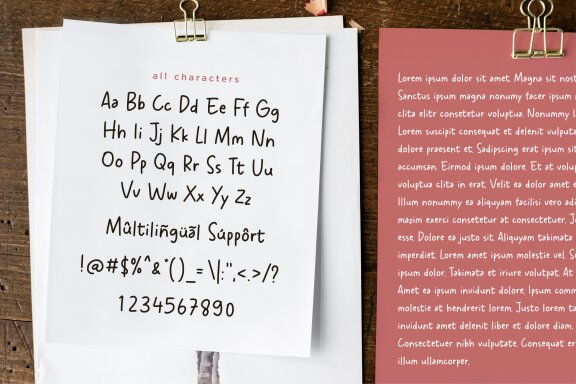 all characters
Aa Bb Cc Dd Ee Ff Gg
Hh Ii Jj Kk Ll Mm Nn
Oo Pp Qq Rr Ss Tt Uu
Vv Ww Xx Yy Zz
Mûltilíñgüãl Súppôrt
!@#$%^&*()_=\|:",<.>/?
1234567890
Lorem ipsum dolor sit amet. Magna sit nost
Sanctus ipsum magna nonumy facer ipsum
clita elitr consetetur voluptua. Nonummy l
Lorem suscipit consequat et delenit volupta
dolore praesent et. Sadipscing erat ipsum sit
accumsan. Eirmod ipsum dolore. Et at volup
voluptua clita in erat. Velit ea dolor amet e
Illum nonummy ea aliquyam facilisi vero adi
mazim exerci consetetur at consectetuer. J
esse. Dolore ea justo sit. Aliquyam takimata
imperdiet. Lorem amet ipsum molestie vel. S
ipsum dolor. Takimata et iriure volutpat. At
Amet ea ipsum invidunt dolore. Ipsum comm
molestie at hendrerit lorem. Justo lorem ta
invidunt amet delenit liber et dolore diam.
Consectetuer nibh vulputate. Consequat er
illum ullamcorper.